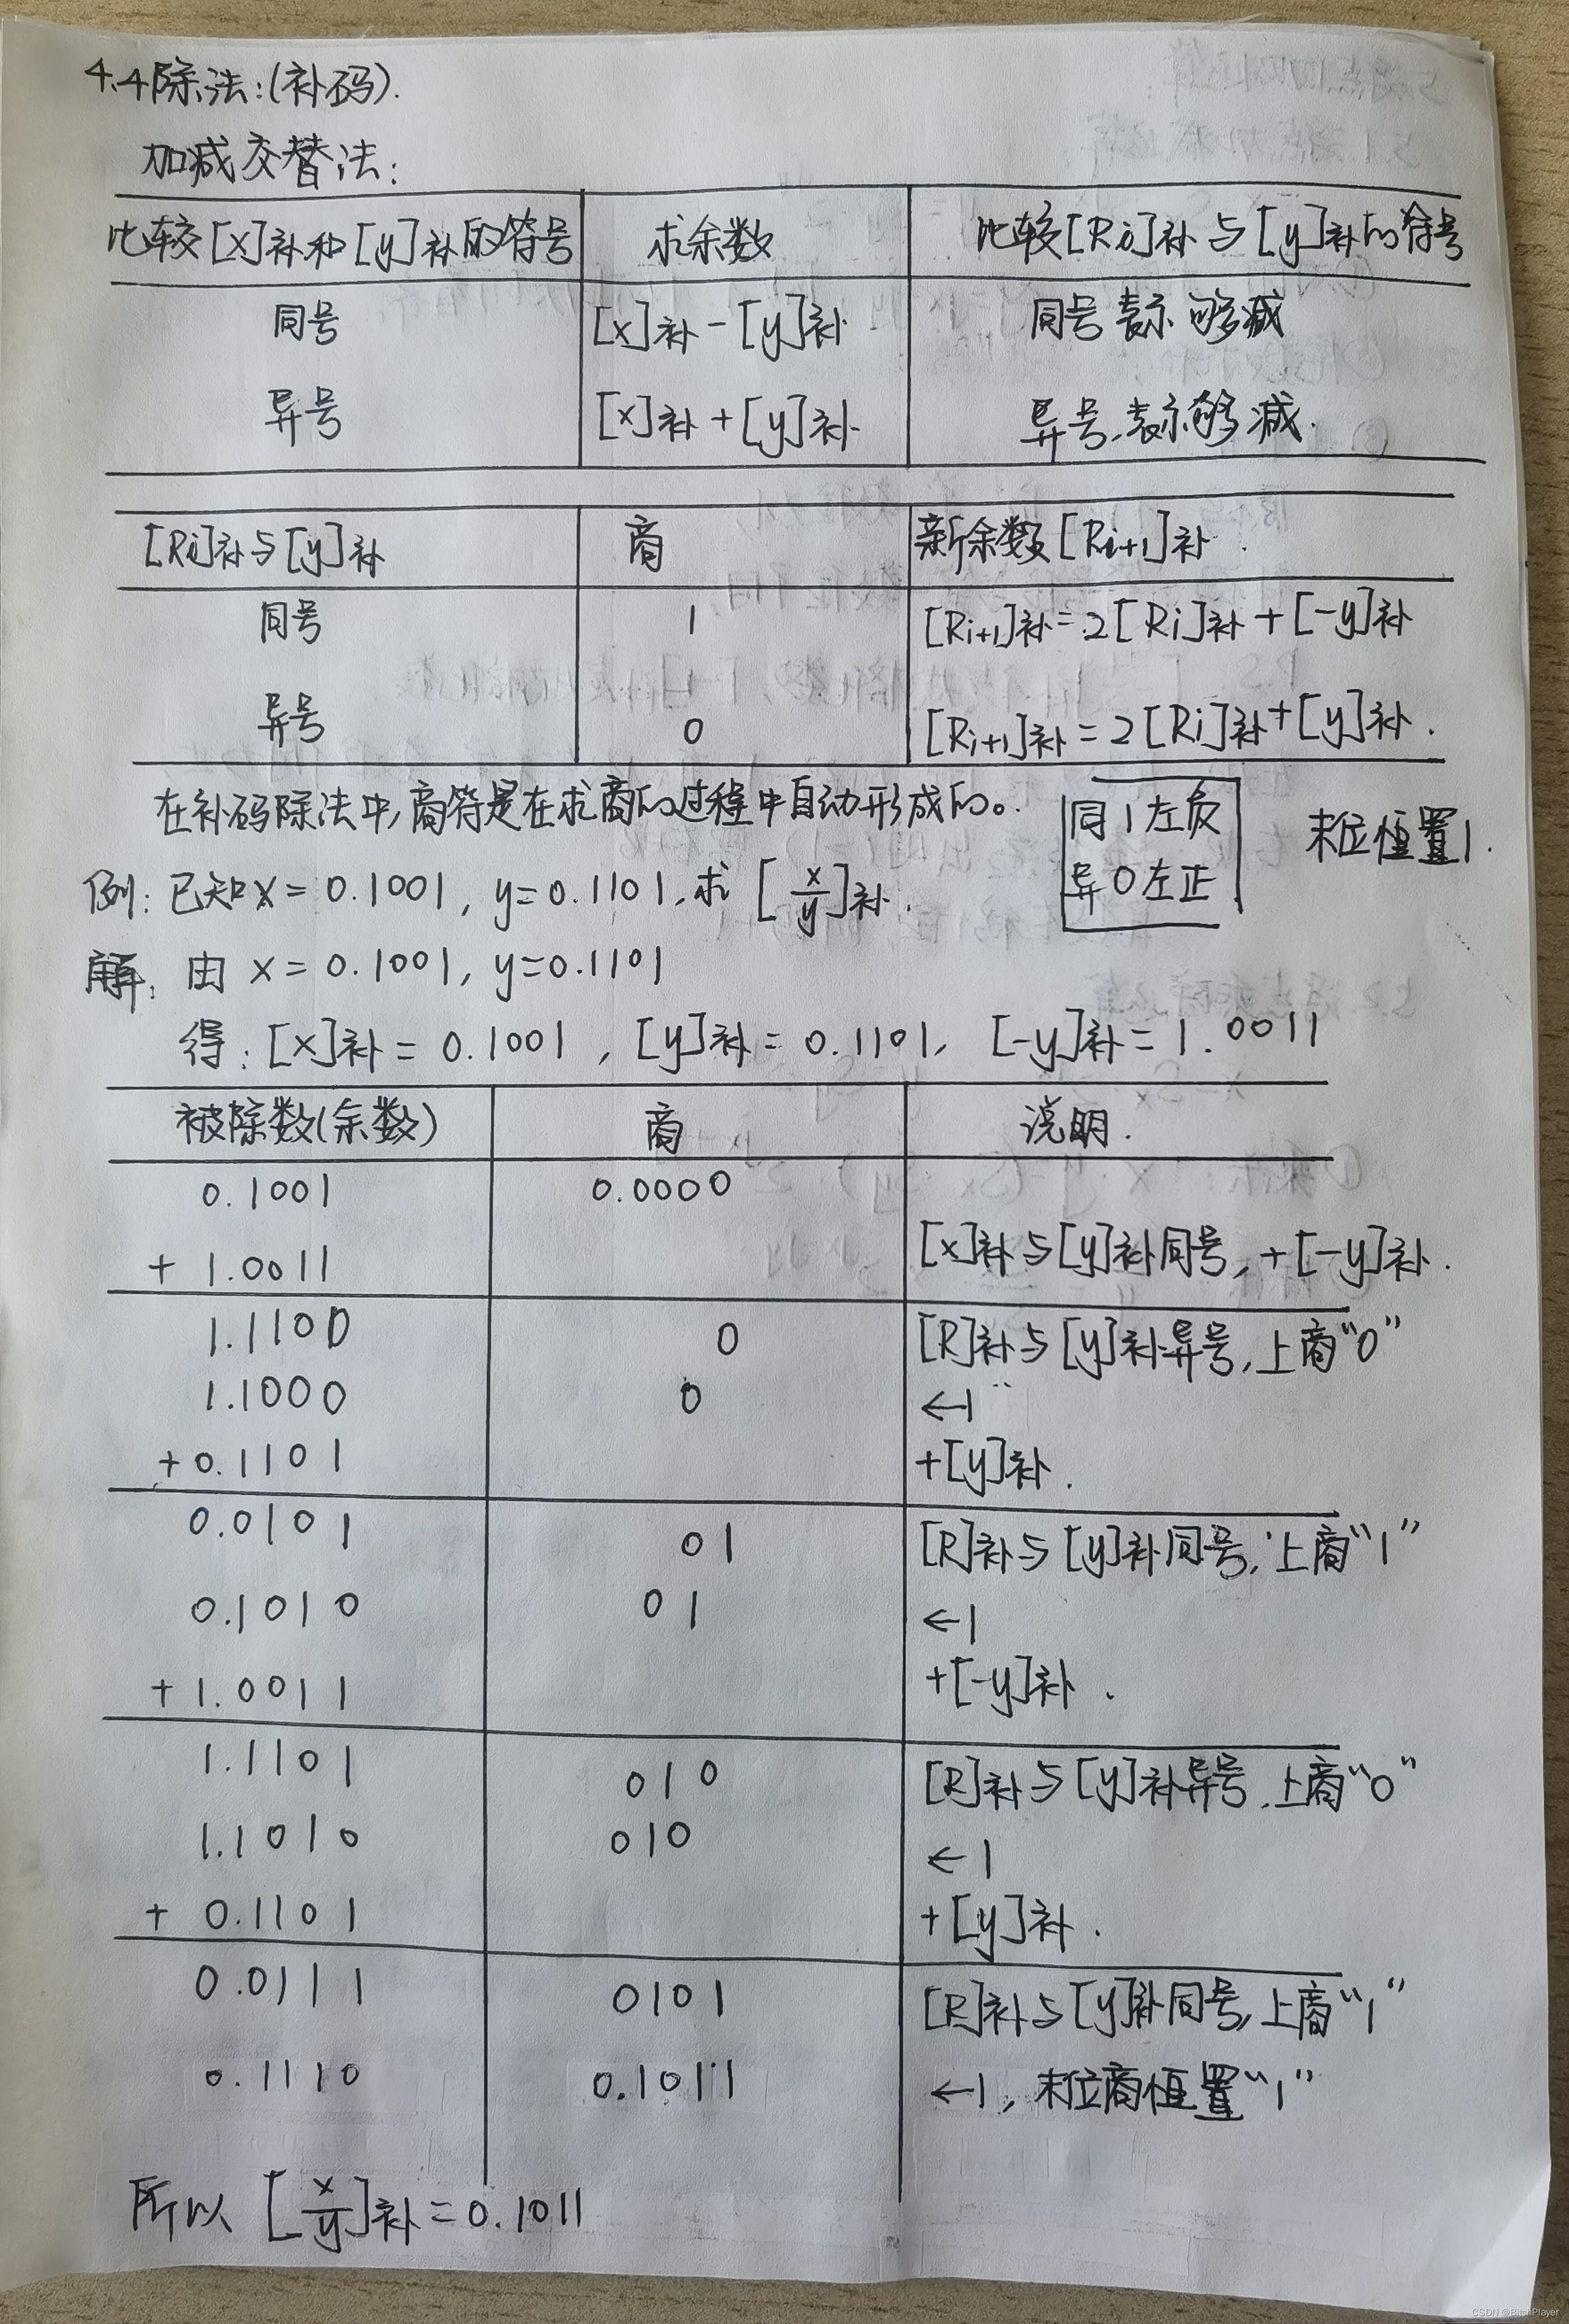 4.4除法:(补码).
加减交替法:
比较[x]补和[y]补的符号 求余数 比较[Ri]补与[y]补的符号
同号 [x]补-[y]补 同号表示够减
异号 [x]补+[y]补 异号,表示够减.
[Ri]补与[y]补 商 新余数[Ri+1]补.
同号 1 [Ri+1]补=2[Ri]补+[-y]补
异号 0 [Ri+1]补=2[Ri]补+[y]补.
在补码除法中,商符是在求商的过程中自动形成的。
同1左负
异0左正
末位恒置1.
例:已知x=0.1001,y=0.1101,求[x/y]补.
解:由x=0.1001,y=0.1101
得:[x]补=0.1001,[y]补=0.1101,[-y]补=1.0011
被除数(余数) 商 说明.
0.1001 0.0000
+1.0011 [x]补与[y]补同号,+[-y]补.
1.1100 0 [R]补与[y]补异号,上商“0”
1.1000 0 ←1
+0.1101 +[y]补.
0.0101 01 [R]补与[y]补同号,上商“1”
0.1010 01 ←1
+1.0011 +[-y]补.
1.1101 010 [R]补与[y]补异号,上商“0”
1.1010 010 ←1
+0.1101 +[y]补.
0.0111 0101 [R]补与[y]补同号,上商“1”
0.1110 0.1011 ←1,末位商恒置“1”
所以[x/y]补=0.1011
CSDN @BitchPlayer